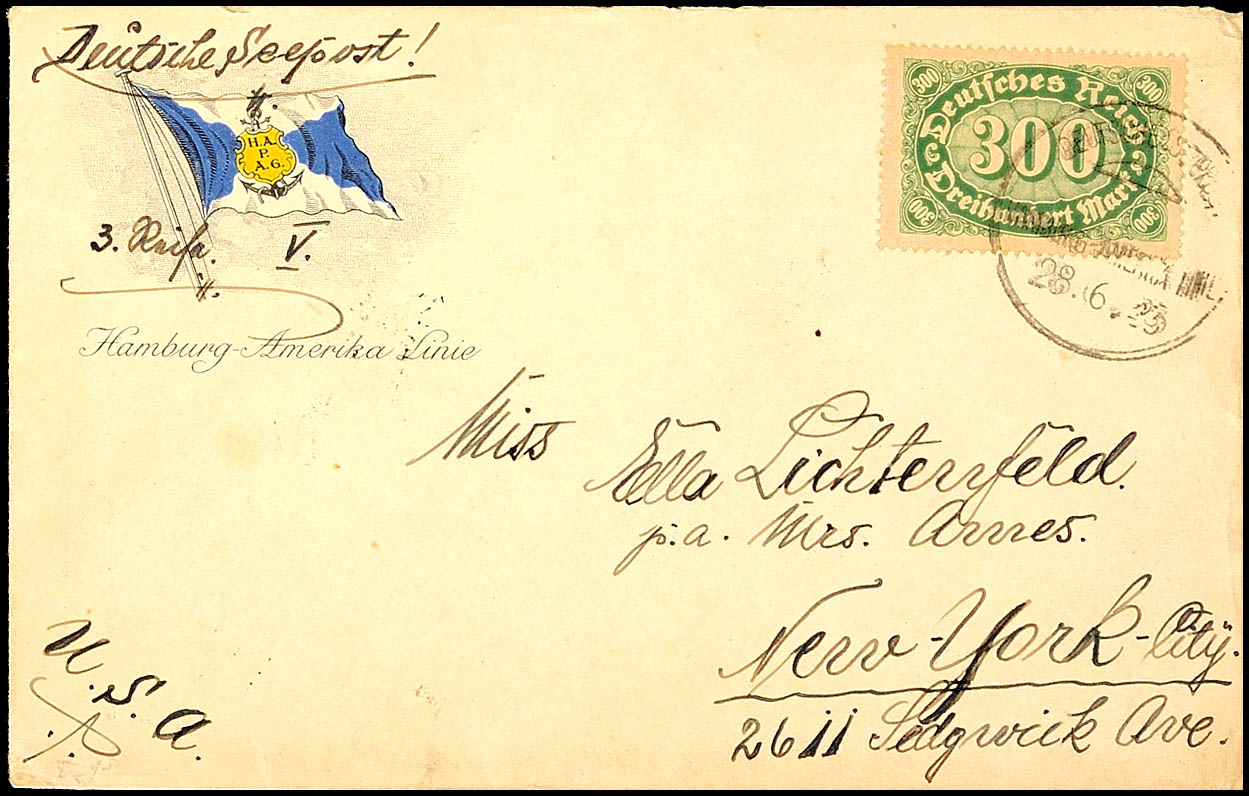 Deutsche Seepost!
H.A.
P.
A.G.
3. Reise. V.
Hamburg-Amerika Linie
300 300
Deutsches Reich
300
Dreihundert Mark
300 300
28. 6. 23
Miss Ella Lichtenfeld.
p.a. Mrs. Armes.
New-York-City.
2611 Sedgwick Ave.
U.S.A.